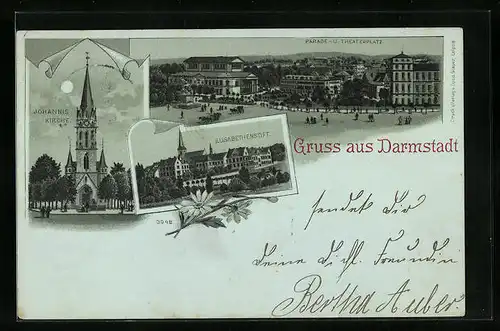 PARADE- U. THEATERPLATZ
JOHANNIS
KIRCHE
ELISABETHENSTIFT.
Gruss aus Darmstadt
3948
sendet Dir
Deine Dich l. Freundin
Bertha Auber.